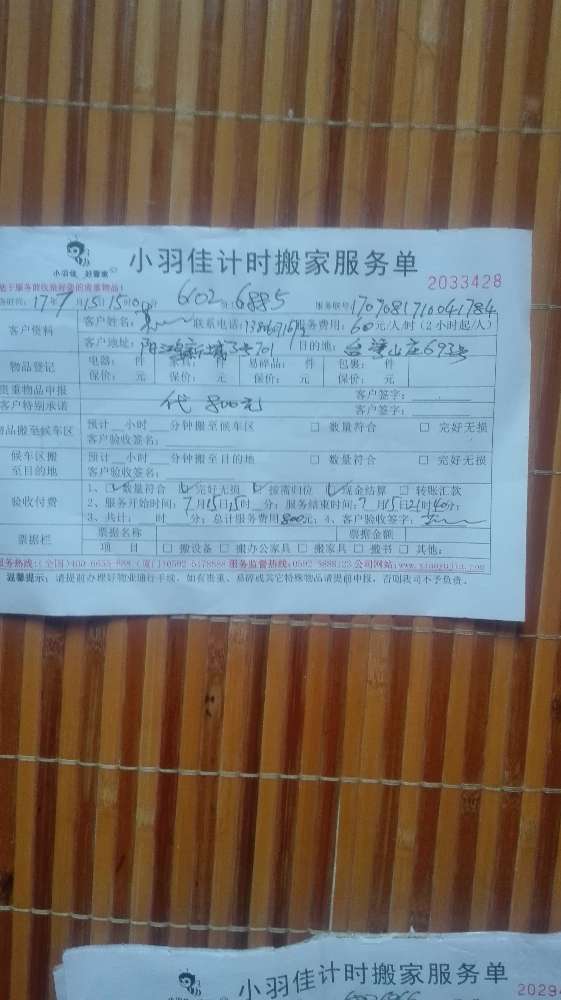 小羽佳 好管家
小羽佳计时搬家服务单
2033428
务时间: 17年7月15日15时0分 602 6885 服务联号
客户资料 客户姓名: 联系电话: 服务费用: 60元/人/时(2小时起/人)
客户地址: 目的地: 山庄693号
物品登记 电器: 件 家具: 件 易碎品: 件 包裹: 件
保价: 元 保价: 元 保价: 元 保价: 元
贵重物品申报 客户签字:
客户特别承诺 代 800元 客户签字:
物品搬至候车区 预计 小时 分钟搬至候车区 □ 数量符合 □ 完好无损
客户验收签名:
候车区搬至目的地 预计 小时 分钟搬至目的地 □ 数量符合 □ 完好无损
客户验收签名:
验收付费 1、☑数量符合 ☑完好无损 ☑按需归位 ☑现金结算 □ 转账汇款
2、服务开始时间: 7月15日15时 分; 服务结束时间: 7月15日21时40分;
3、共计: 时 分; 总计服务费用800元; 4、客户验收签字:
票据栏 票据名称 票据金额
项 目 □ 搬设备 □ 搬办公家具 □ 搬家具 □ 搬书 □ 其他:
服务热线:(全国)400 6655 888 (厦门)0592 5178588 服务监督热线:0592 5888123 公司网站:www.xiaoyujia.com
温馨提示: 请提前办理好物业通行手续, 如有贵重、易碎或其它特殊物品请提前申报, 否则我司不予负责。
小羽佳计时搬家服务单
2029